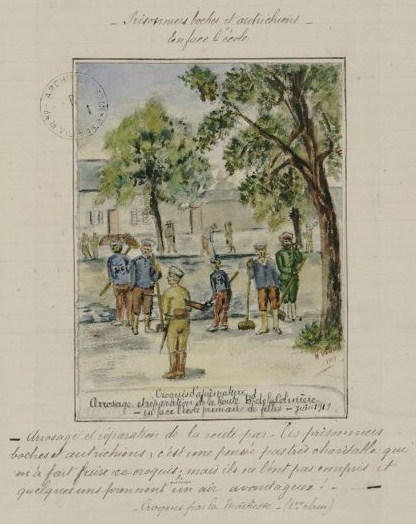 – Prisonniers boches et autrichiens –
En face l'école
ARCHIVES
Croquis d'après nature
Arrosage et réparation de la route Bd de la Colinière
– en face l'école primaire de filles – Juin 1919
– Arrosage et réparation de la route par les prisonniers
boches et autrichiens; c'est une pensée pas très charitable qui
m'a fait faire ce croquis; mais ils ne l'ont pas compris et
quelques uns prennent un air avantageux! –
Croquis par la Maîtresse –